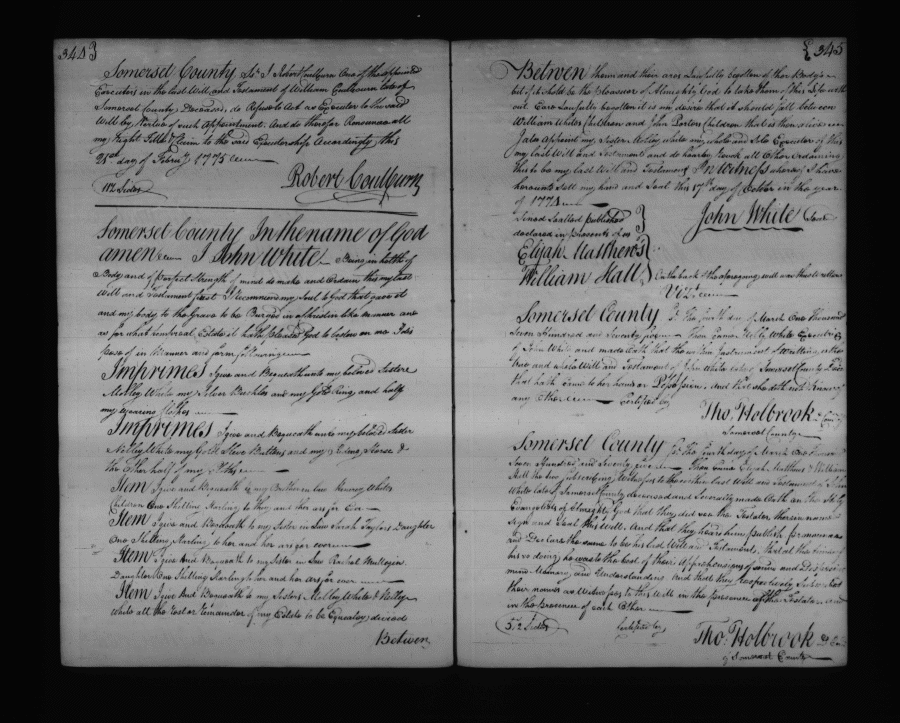 344}
Somerset County Ss. I Robert Coulburn One of the appointed
Executors in the last Will and Testament of William Coulbourn late of
Somerset County Deceased; do Refuse to Act as Executor to the said
Will by Virtue of such Appointment. And do therefor Renounce all
my Right Title & Claim to the said Executorship Accordingly this
21st day of Febry 1775
112 Sides
Robert Coulburn
Somerset County In the name of God
amen I John White Being in helth of
Body and of Perfect Strength of mind do make and Ordain this my last
Will and Testament first I Recommend my Soul to God that gave it
and my body to the Grave to be Buryed in a Christin like manner and
as for what temporal Estate it hath Pleased God to bestow on me I dis
pose of in Manner and form following
Imprimes I give and Bequeath unto my beloved Sister
Molley White my Silver Buckles and my Gold Ring and half
my wearing Clothes
Imprimes I give and Bequeath unto my beloved Sister
Nelley White my Gold Sleve Buttons and my Horse &
the Other half of my
Item I give and Bequeath to my Brother in law Henrey White
Children One Shilling Starling to they and her as for Ever
Item I give and Bequeath to my Sister in Law Sarah Taylors Daughter
One Shilling Starling to her and her ars for ever
Item I give And Bequeath to my Sister in Law Rachel
Daughter One Shilling Starling to her and her ars for ever
Item I give And Bequeath to my Sisters Molley White & Nelley
White all the rest or Remainder of my Estate to be Equaley divided
Betwen
{345
Betwen them and their ares Lawfully begotten of thar Bodys
but if it should be the Pleasure of Almighty God to take them of this Life with
out Ears Lawfully begotten it is my desire that it should fall between
William Whites Children and John Porters Children that is then alive
I also appoint my Sister Nelley white my whole and Sole Executor of this
my last Will and Testament and do hearby Revok all Others Ordaining
this to be my last Will and Testament In Witness whereof I have
hereunto Sett my hand and Seal this 17th day of October in the year
of 1774
John White Seal
Sined Sealled Published
declared in Presents of us
Elijah Matthews
William Hall
On the back of the aforegoing will was thus written
Vizt
Somerset County Ss. The fourth day of March One thousand
Seven Hundred and Seventy five Then Came Nelly White Executrix
of John White and made Oath that the within Instrument of Writing is the
true and whole Will and Testament of John White late of Somerset County
that hath Came to her hand or Possession. And that she doth not know of
any Other Certified by
Tho. Holbrook
Somerset County
Somerset County Ss. The fourth day of March One thousand
Seven Hundred and Seventy five Then Came Elijah Matthews & William
Hall the two subscribing Witnesses to the within Last Will and Testament of John
White late of Somerset County deceased and Severally made Oath on the Holy
Evangelists of Almighty God that they did see the Testator therein named
Sign and Seal this Will. And that they heard him Publish Pronounce
and Declare the same to be his last Will and Testament, that at the time of
his so doing he was to the best of their Apprehensions of sound and Disposing
mind Memory and Understanding And that they respectively Subscribed
their names as Witnesses to this Will in the presence of the Testator and
in the Presence of each Other
5½ Sides
Certified by
Tho. Holbrook
of Somerset County